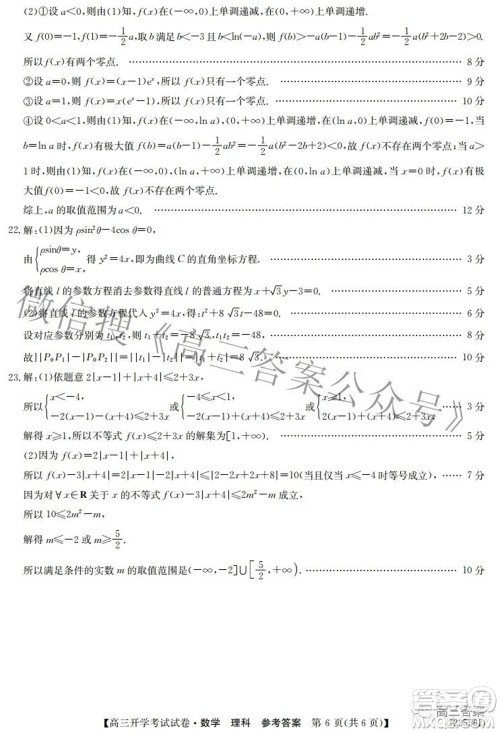 (2)①设 a<0,则由(1)知,f(x)在(-∞,0)上单调递减,在(0,+∞)上单调递增.
又 f(0)=-1,f(1)=-1/2a,取 b 满足 b<-3 且 b<ln(-a),则 f(b)>a(b-1)-1/2ab²=-1/2a(b²-2b+2)>0.
所以 f(x)有两个零点. 8 分
②设 a=0,则 f(x)=(x-1)eˣ,所以 f(x)只有一个零点. 9 分
③设 a=1,则 f(x)=x(eˣ-1),所以 f(x)只有一个零点. 10 分
④设 0<a<1,则由(1)知,f(x)在(-∞,ln a)上单调递增,在(ln a,0)上单调递减,f(0)=-1,当
b=ln a 时,f(x)有极大值 f(b)=a(b-1)-1/2ab²=-1/2a(b²-2b+2)<0,故 f(x)不存在两个零点,当 a>
1时,则由(1)知,f(x)在(-∞,0)上单调递增,在(0,ln a)上单调递减,在(ln a,+∞)上单调递增,f(x)有极
大值 f(0)=-1<0,故 f(x)不存在两个零点.
综上,a 的取值范围为 a<0. 12 分
22.解:(1)因为 ρsin²θ-4cosθ=0,
由{ρsinθ=y, ρcosθ=x,得 y²=4x,即为曲线 C 的直角坐标方程. 3 分
将直线 l 的参数方程消去参数得直线 l 的普通方程为 x+√3y=0. 5 分
(2)将直线 l 的参数方程代入 y²=4x,得:t²+8√3t-48=0, 6 分
设对应参数分别为 t₁,t₂,则 t₁+t₂=-8√3,t₁t₂=-48, 8 分
故||P₀P₁|-|P₀P₂||=||t₁|-|t₂||=|t₁+t₂|=8√3. 10 分
23.解:(1)依题意 2|x-1|+|x+4|≤2+3x,
所以{x<-4, -2(x-1)-(x+4)≤2+3x 或{-4≤x<1, -2(x-1)+(x+4)≤2+3x 或{x≥1, 2(x-1)+(x+4)≤2+3x 3 分
解得 x≥1,所以不等式 f(x)≤2+3x 的解集为[1,+∞). 5 分
(2)因为
所以 f(x)-3|x+4| 7 分
因为对∀x∈R 关于 x 的不等式 f(x)-3|x+4|≤2m²-m,
所以 10≤2m²-m,
解得 m≤-2 或 m≥5/2.
所以满足条件的实数 m 的取值范围是(-∞,-2]∪[5/2,+∞). 10 分
微信搜《高三答案公众号》
【高三开学考试试卷·数学 理科 参考答案 第 6 页(共 6 页)】
高三答案